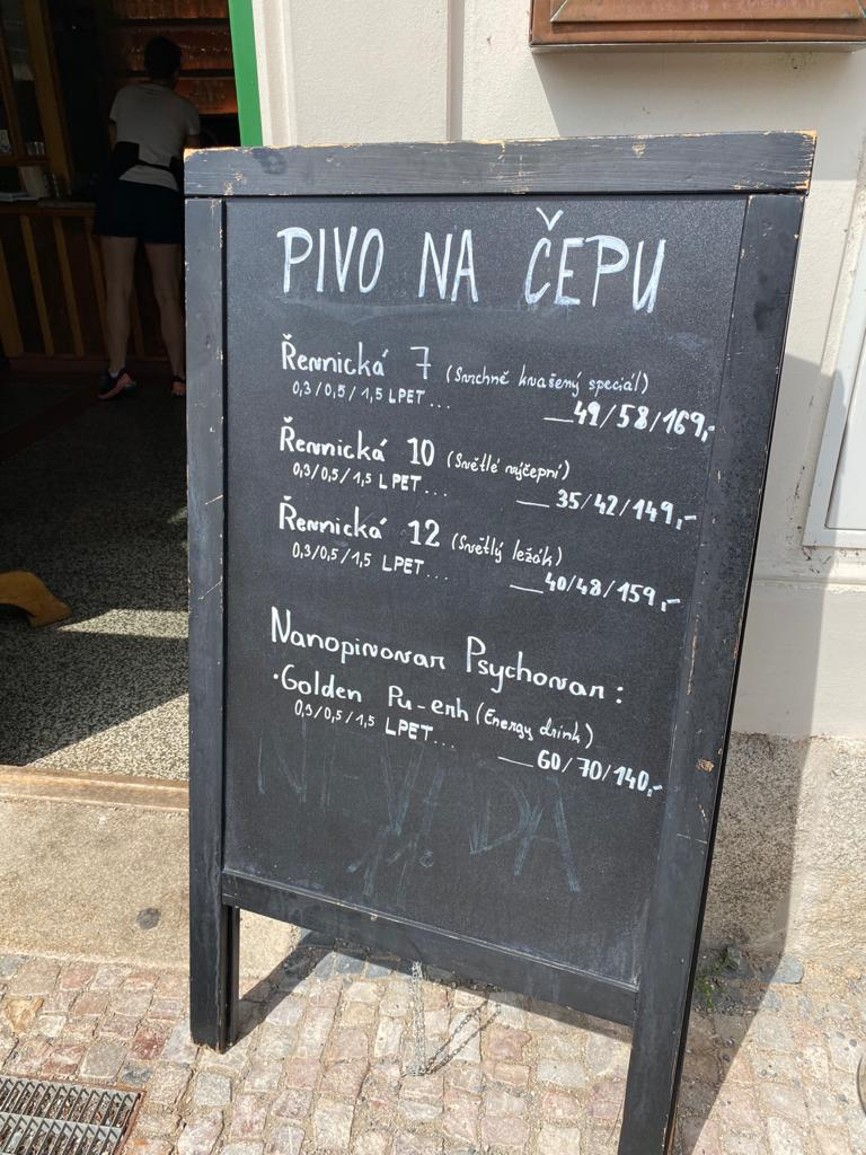 PIVO NA ČEPU
Řevnická 7 (Svrchně kvašený speciál)
0,3/0,5/1,5 LPET... —49/58/169,-
Řevnická 10 (Světlé výčepní)
0,3/0,5/1,5 LPET... —35/42/149,-
Řevnická 12 (Světlý ležák)
0,3/0,5/1,5 LPET... —40/48/159,-
Nanopivovar Psychovar:
·Golden Pu-erh (Energy drink)
0,3/0,5/1,5 LPET... —60/70/140,-